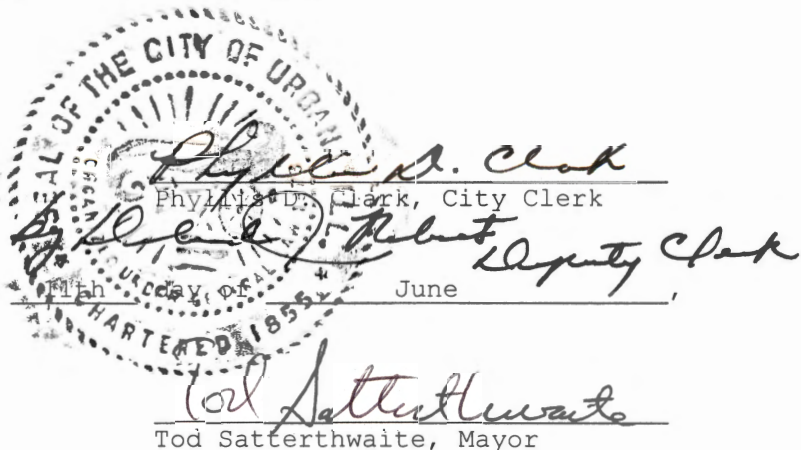 SEAL OF THE CITY OF URBANA, ILL.
CHARTERED 1855
Phyllis D. Clark
Phyllis D. Clark, City Clerk
by Robert Deputy Clerk
11th day of June ,
Tod Satterthwaite
Tod Satterthwaite, Mayor